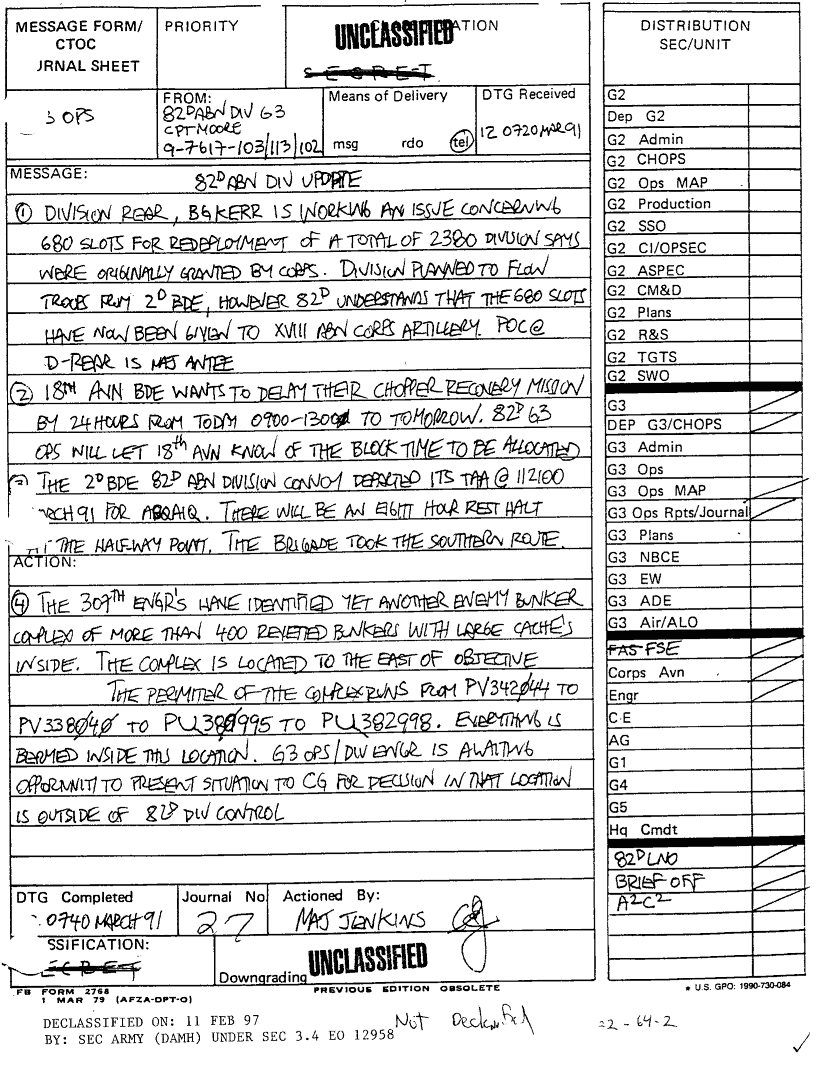 MESSAGE FORM/
CTOC
JRNAL SHEET
PRIORITY
UNCLASSIFIED
ATION
SECRET
OPS
FROM:
82D ABN DIV G3
CPT MOORE
9-7617-103/113/102
Means of Delivery
msg rdo tel
DTG Received
12 0720 MAR 91
MESSAGE:
82D ABN DIV UPDATE
① DIVISION REAR, BG KERR IS WORKING AN ISSUE CONCERNING
680 SLOTS FOR REDEPLOYMENT OF A TOTAL OF 2380 DIVISION SAYS
WERE ORIGINALLY GRANTED BY CORPS. DIVISION PLANNED TO FLOW
TROOPS FROM 2D BDE, HOWEVER 82D UNDERSTANDS THAT THE 680 SLOTS
HAVE NOW BEEN GIVEN TO XVIII ABN CORPS ARTILLERY. POC @
D-REAR IS MAJ ANTEE
② 18TH AVN BDE WANTS TO DELAY THEIR CHOPPER RECOVERY MISSION
BY 24 HOURS FROM TODAY 0900-1300 TO TOMORROW. 82D G3
OPS WILL LET 18th AVN KNOW OF THE BLOCK TIME TO BE ALLOCATED
THE 2D BDE 82D ABN DIVISION CONVOY DEPARTED ITS TAA @ 112100
RCH 91 FOR ABQAIQ. THERE WILL BE AN EIGHT HOUR REST HALT
AT THE HALFWAY POINT. THE BRIGADE TOOK THE SOUTHERN ROUTE.
ACTION:
④ THE 307TH ENGR'S HAVE IDENTIFIED YET ANOTHER ENEMY BUNKER
COMPLEX OF MORE THAN 400 REVETED BUNKERS WITH LARGE CACHE'S
INSIDE. THE COMPLEX IS LOCATED TO THE EAST OF OBJECTIVE
THE PERMITER OF THE COMPLEX RUNS FROM PV342044 TO
PV338040 TO PU380995 TO PU382998. EVERYTHING IS
BERMED INSIDE THIS LOCATION. G3 OPS/DIV ENGR IS AWAITING
OPPORNUITI TO PRESENT SITUATION TO CG FOR DECISION IN THAT LOCATION
IS OUTSIDE OF 82D DIV CONTROL
DTG Completed
0740 MARCH 91
Journal No
27
Actioned By:
MAJ JENKINS
SSIFICATION:
ECRET
Downgrading
UNCLASSIFIED
FB FORM 2768
1 MAR 79 (AFZA-DPT-O)
PREVIOUS EDITION OBSOLETE
DISTRIBUTION
SEC/UNIT
G2
Dep G2
G2 Admin
G2 CHOPS
G2 Ops MAP
G2 Production
G2 SSO
G2 CI/OPSEC
G2 ASPEC
G2 CM&D
G2 Plans
G2 R&S
G2 TGTS
G2 SWO
G3
DEP G3/CHOPS
G3 Admin
G3 Ops
G3 Ops MAP
G3 Ops Rpts/Journal
G3 Plans
G3 NBCE
G3 EW
G3 ADE
G3 Air/ALO
FAS FSE
Corps Avn
Engr
CE
AG
G1
G4
G5
Hq Cmdt
82D LNO
BRIEF OFF
A2C2
* U.S. GPO: 1990-730-084
DECLASSIFIED ON: 11 FEB 97
BY: SEC ARMY (DAMH) UNDER SEC 3.4 EO 12958
Not
22-64-2